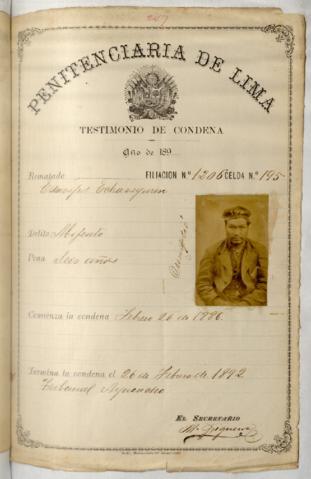 267
PENITENCIARIA DE LIMA
TESTIMONIO DE CONDENA
Año de 189
Rematado FILIACION N.º 1206 CELDA N.º 195
Delito
Pena Seis años
Cumplió
Comienza la condena Febrero 26 de 1886.
Termina la condena el 26 de Febrero de 1892
Tribunal Ayacucho
EL SECRETARIO